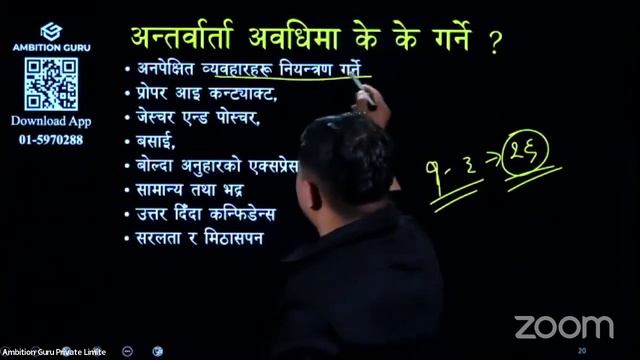 AMBITION GURU
Download App
01-5970288
अन्तर्वार्ता अवधिमा के के गर्ने ?
• अनपेक्षित व्यवहारहरू नियन्त्रण गर्ने
• प्रोपर आइ कन्ट्याक्ट,
• जेस्चर एन्ड पोस्चर,
• बसाई,
• बोल्दा अनुहारको एक्सप्रेस
• सामान्य तथा भद्र
• उत्तर दिँदा कन्फिडेन्स
• सरलता र मिठासपन
१-३ ⇒ २६
Ambition Guru Private Limite
zoom
20